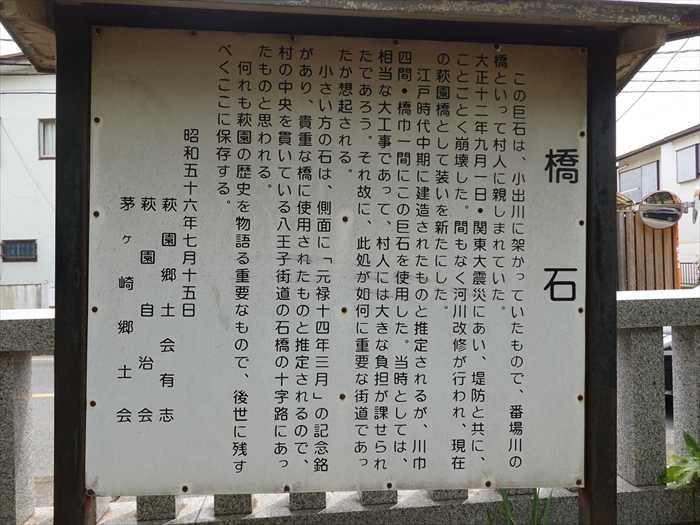 橋石
この巨石は、小出川に架かっていたもので、番場川の
橋といって村人に親しまれていた。
大正十二年九月一日・関東大震災にあい、堤防と共に、
ことごとく崩壊した。間もなく河川改修が行われ、現在
の萩園橋として装いを新たにした。
江戸時代中期に建造されたものと推定されるが、川巾
四間・橋巾一間にこの巨石を使用した。当時としては、
相当な大工事であって、村人には大きな負担が課せられ
たであろう。それ故に、此処が如何に重要な街道であっ
たか想起される。
小さい方の石は、側面に「元禄十四年三月」の記念銘
があり、貴重な橋に使用されたものと推定されるので、
村の中央を貫いている八王子街道の石橋の十字路にあっ
たものと思われる。
何れも萩園の歴史を物語る重要なもので、後世に残す
べくここに保存する。
昭和五十六年七月十五日
萩園郷土会有志
萩園自治会
茅ヶ崎郷土会